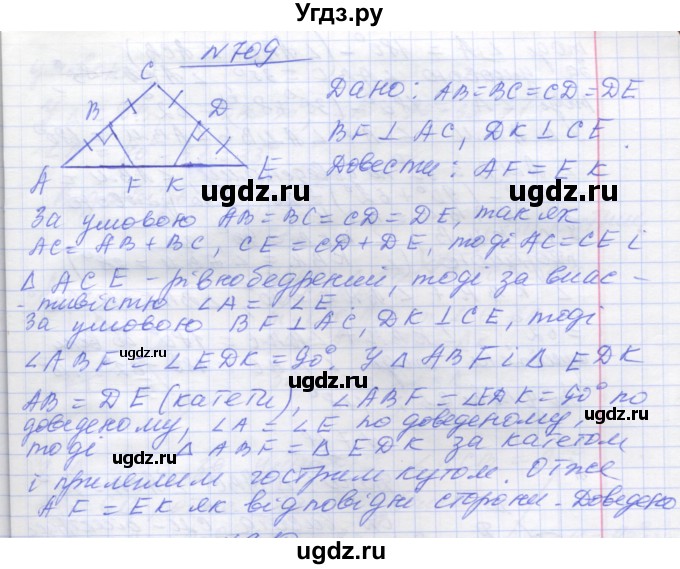 Угдз.ру
№709
C
B
D
A
F
K
E
Дано: AB=BC=CD=DE
BF⊥AC, DK⊥CE.
Довести: AF=EK
ugdz.ru
ugdz.ru
За умовою AB=BC=CD=DE, так як
AC=AB+BC, CE=CD+DE, тоді AC=CE і
△ACE - рівнобедрений, тоді за влас-
-тивістю ∠A=∠E.
ugdz.ru
За умовою BF⊥AC, DK⊥CE, тоді
∠ABF=∠EDK=90° У △ABF і △EDK
ugdz.ru
ugdz.ru
AB=DE (катети), ∠ABF=∠EDK=90° по
доведеному, ∠A=∠E по доведеному,
тоді △ABF=△EDK за катетом
ugdz.ru
і прилеглим гострим кутом. Отже
ugdz.ru
ugdz.ru
AF=EK як відповідні сторони. Доведено
ugdz.ru